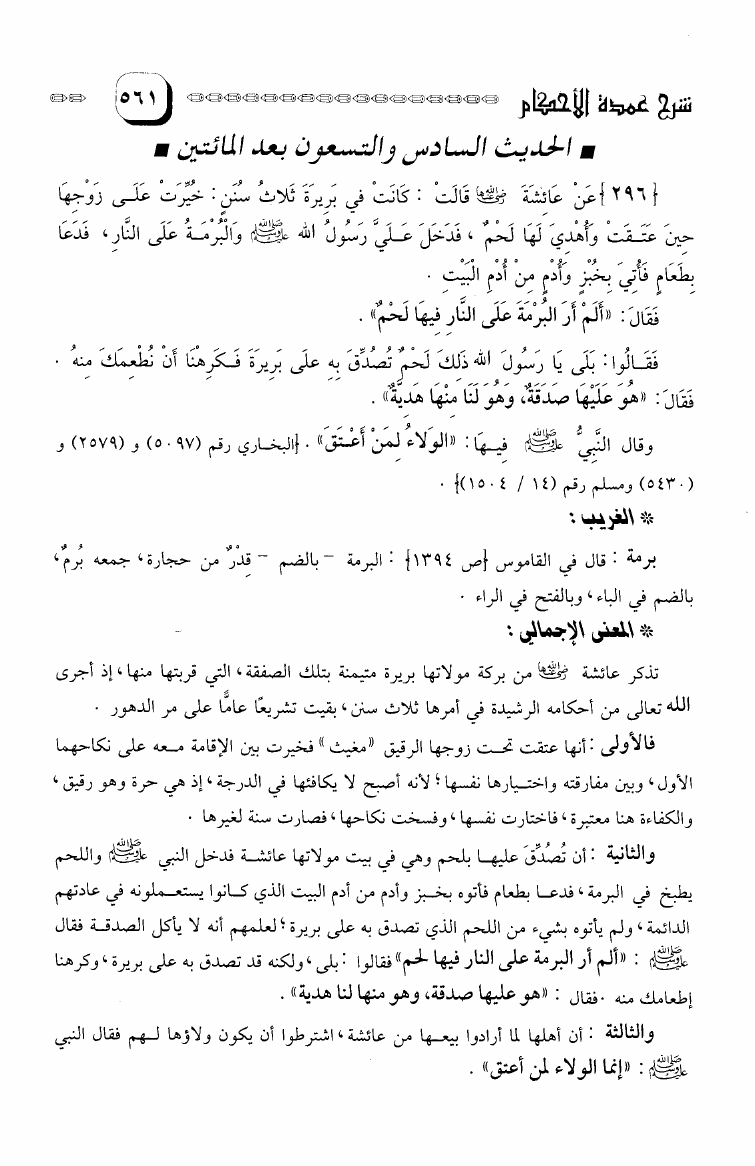 شرح عمدة الأحكام ٥٦١
■ الحديث السادس والتسعون بعد المائتين ■
{٢٩٦} عَنْ عَائِشَةَ رضي الله عنها قَالَتْ : كَانَتْ في بَرِيرَةَ ثَلاثُ سُنَنٍ: خُيِّرَتْ عَلَـى زَوْجِهَا
حينَ عَتَـقَتْ وَأُهْدِيَ لَهَا لَحْمٌ ، فَدَخَلَ عَـلَيَّ رَسُولُ الله ﷺ وَالْبُرْمَـةُ عَلَى النَّارِ، فَدَعَا
بِطَعَامٍ فَأُتِيَ بِخُبْزٍ وَأُدْمٍ مِنْ أُدْمِ الْبَيْتِ .
فَقَالَ: «أَلَمْ أَرَ البُرْمَةَ عَلَى النَّارِ فِيهَا لَحْمٌ» .
فَقَـالُوا: بَلَى يَا رَسُولَ الله ذَلِكَ لَحْمٌ تُصُدِّقَ بِهِ علَى بَرِيرَةَ فَـكَرِهْنَا أَنْ نُطْعِمَكَ مِنهُ .
فَقَالَ: «هُوَ عَلَيْهَا صَدَقَةٌ، وَهُوَ لَنَا مِنْهَا هَدِيَّةٌ» .
وقال النَّبِيُّ ﷺ فِيـهَا: «الوَلاءُ لِمَنْ أَعْـتَقَ» . {البخـاري رقم (٥٠٩٧) و (٢٥٧٩) و
(٥٤٣٠) ومسلم رقم (١٤ / ١٥٠٤)} .
* الغريب :
برمة : قال في القاموس {ص ١٣٩٤} : البرمة – بالضم – قِدْرٌ من حجارة، جمعه بُرمٌ،
بالضم في الباء، وبالفتح في الراء .
* المعنى الإجمالي :
تذكر عائشة رضي الله عنها من بركة مولاتها بريرة متيمنة بتلك الصفقة، التي قربتها منها، إذ أجرى
الله تعالى من أحكامه الرشيدة في أمرها ثلاث سنن، بقيت تشريعًا عامًّا على مر الدهور .
فالأولى : أنها عتقت تحـت زوجها الرقيق «مغيث» فخيرت بين الإقامة مـعه على نكاحهما
الأول، وبين مفارقته واختـيارها نفسها؛ لأنه أصبح لا يكافئها في الدرجة، إذ هي حرة وهو رقيق،
والكفاءة هنا معتبرة، فاختارت نفسها، وفسخت نكاحها، فصارت سنة لغيرها .
والثانية : أن تُصُدِّقَ عليهـا بلحم وهي في بيت مولاتها عائشـة فدخل النبي ﷺ واللحم
يطبخ في البرمة، فدعـا بطعام فأتوه بخـبز وأدم من أدم البيت الذي كـانوا يستعـملونه في عادتهم
الدائمة، ولم يأتوه بشيء من اللحم الذي تصدق به على بريرة؛ لعلمهم أنه لا يأكل الصدقـة فقال
ﷺ : «ألم أر البرمة على النار فيها لحم» فقالوا : بلى، ولكنه قد تصدق به على بريرة، وكرهنا
إطعامك منه . فقال : «هو عليها صدقة، وهو منها لنا هدية» .
والثالثة : أن أهلها لما أرادوا بيعـها من عائشة، اشترطوا أن يكون ولاؤها لـهم فقال النبي
ﷺ : «إنما الولاء لمن أعتق» .